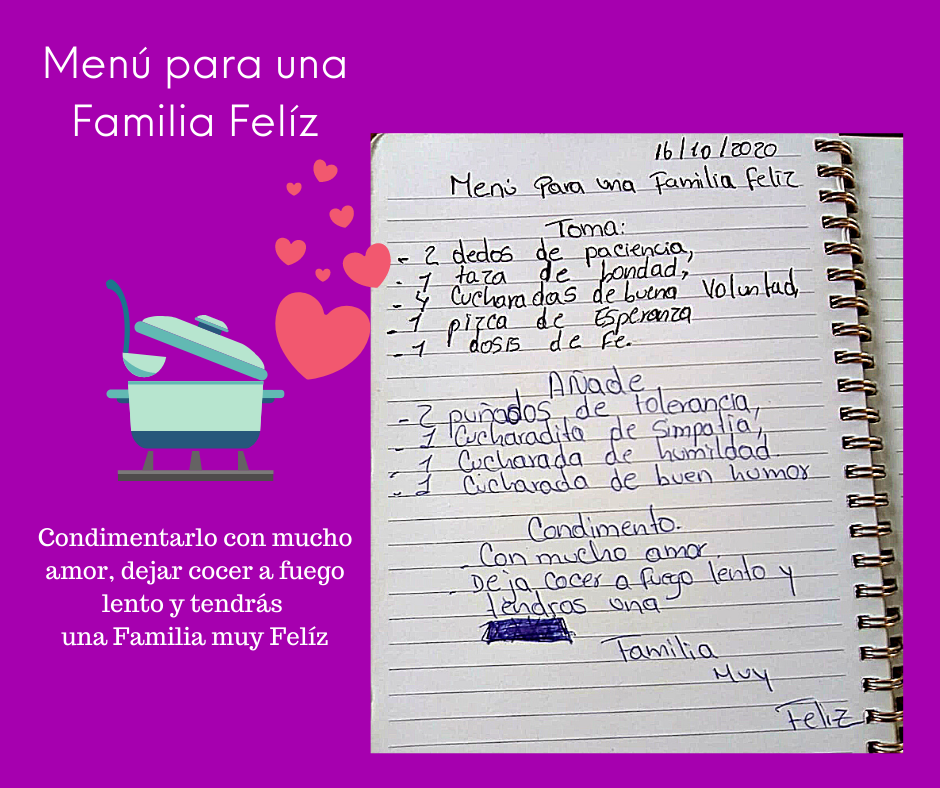 Menú para una
Familia Felíz
16/10/2020
Menú Para una Familia feliz
Toma:
- 2 dedos de paciencia,
- 1 taza de bondad,
- 4 Cucharadas de buena Voluntad,
- 1 pizca de Esperanza
- 1 dosis de Fe.
Añade,
- 2 puñados de tolerancia,
1 Cucharadita de Simpatía,
- 1 Cucharada de humildad.
- 1 Cucharada de buen humor
Condimento.
- Con mucho amor.
Deja cocer a fuego lento y
tendros una
Familia
Muy
Feliz
Condimentarlo con mucho
amor, dejar cocer a fuego
lento y tendrás
una Familia muy Felíz